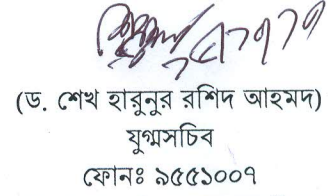 (ড. শেখ হারুনুর রশিদ আহমদ)
যুগ্মসচিব
ফোনঃ ৯৫৫১০০৭